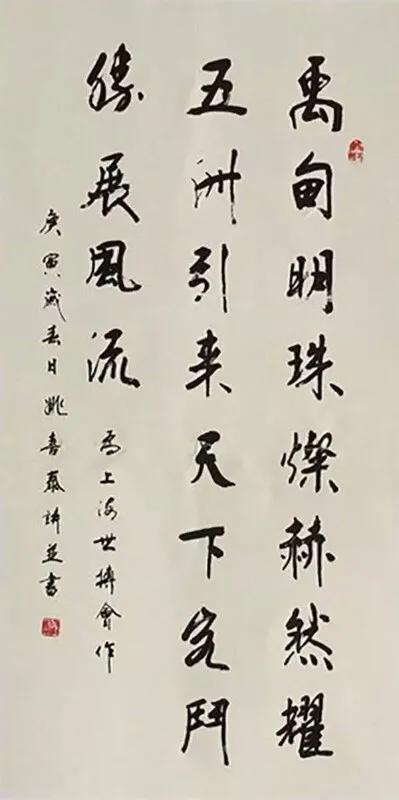 禹甸明珠燦赫然耀
五洲引来天下客鬥
勝展風流
為上海世博會作
庚寅歲春日姚喜詩並書